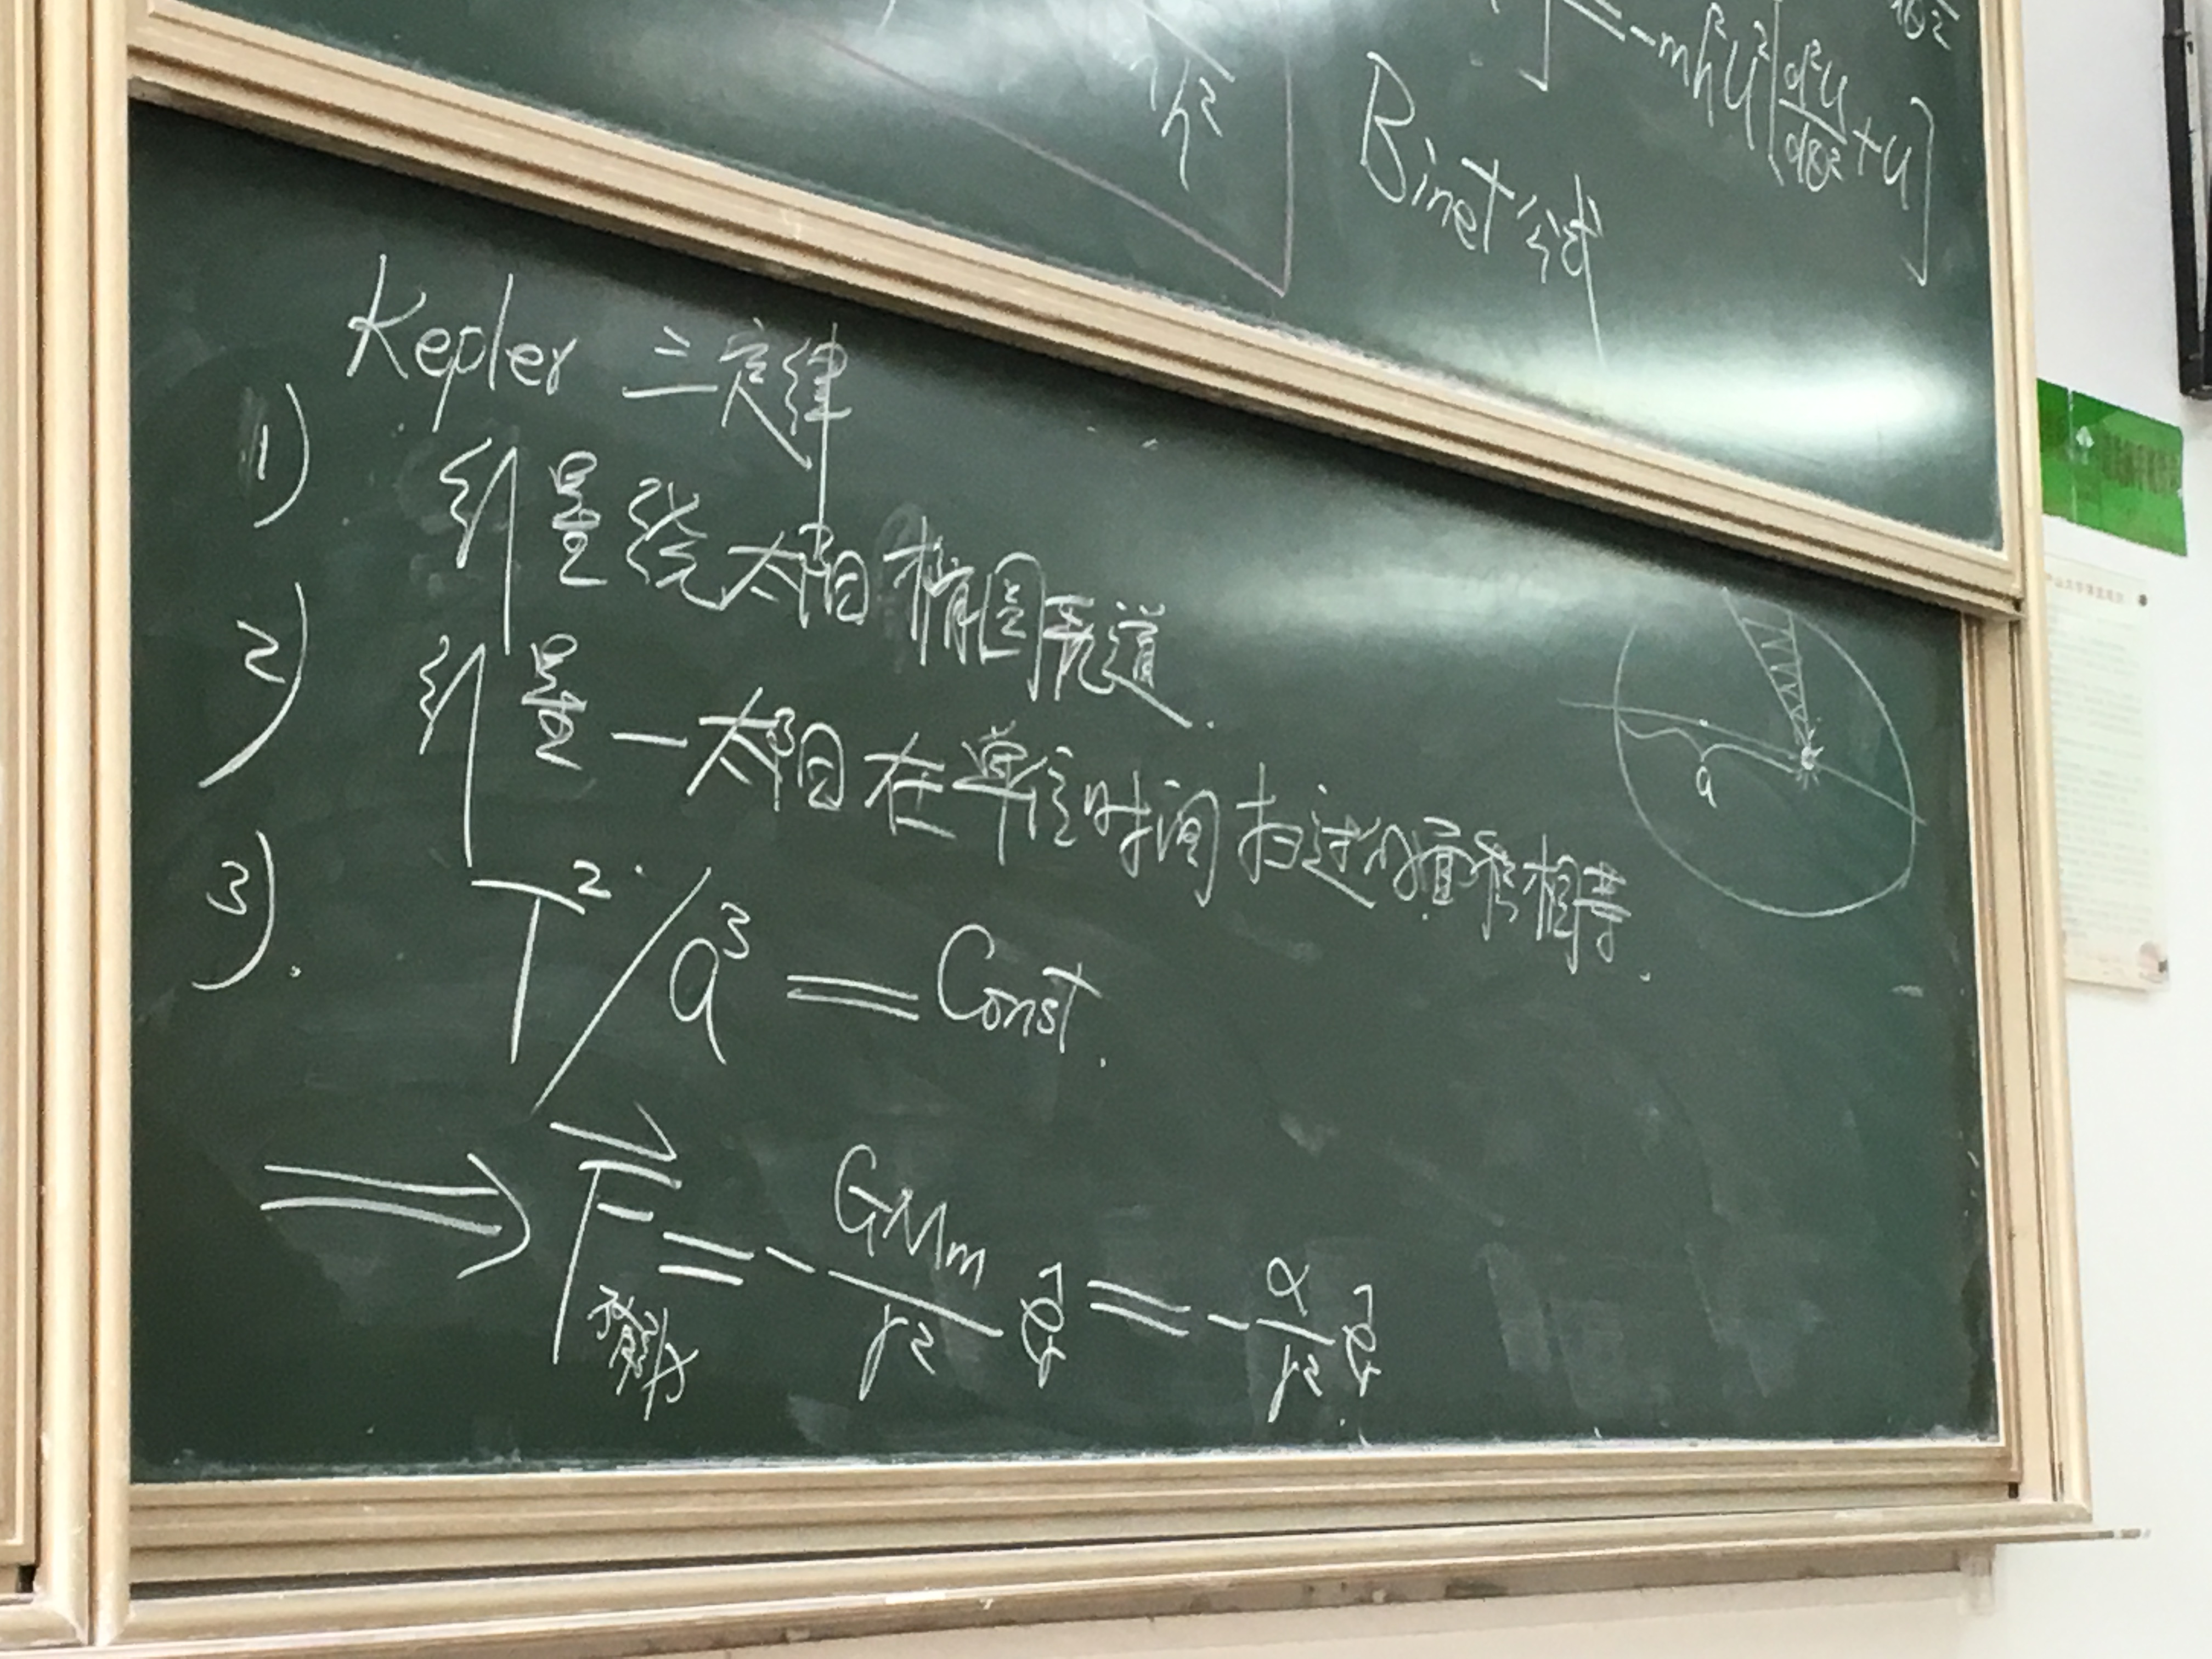 h²
= -mh²u²[d²u/dθ² + u]
Binet 公式
Kepler 三定律
1) 行星绕太阳椭圆轨道.
2) 行星一太阳在单位时间扫过的面积相等.
3). T²/a³ = Const.
a
⟹ F⃗ = - GMm/r² e⃗r = - α/r² e⃗r